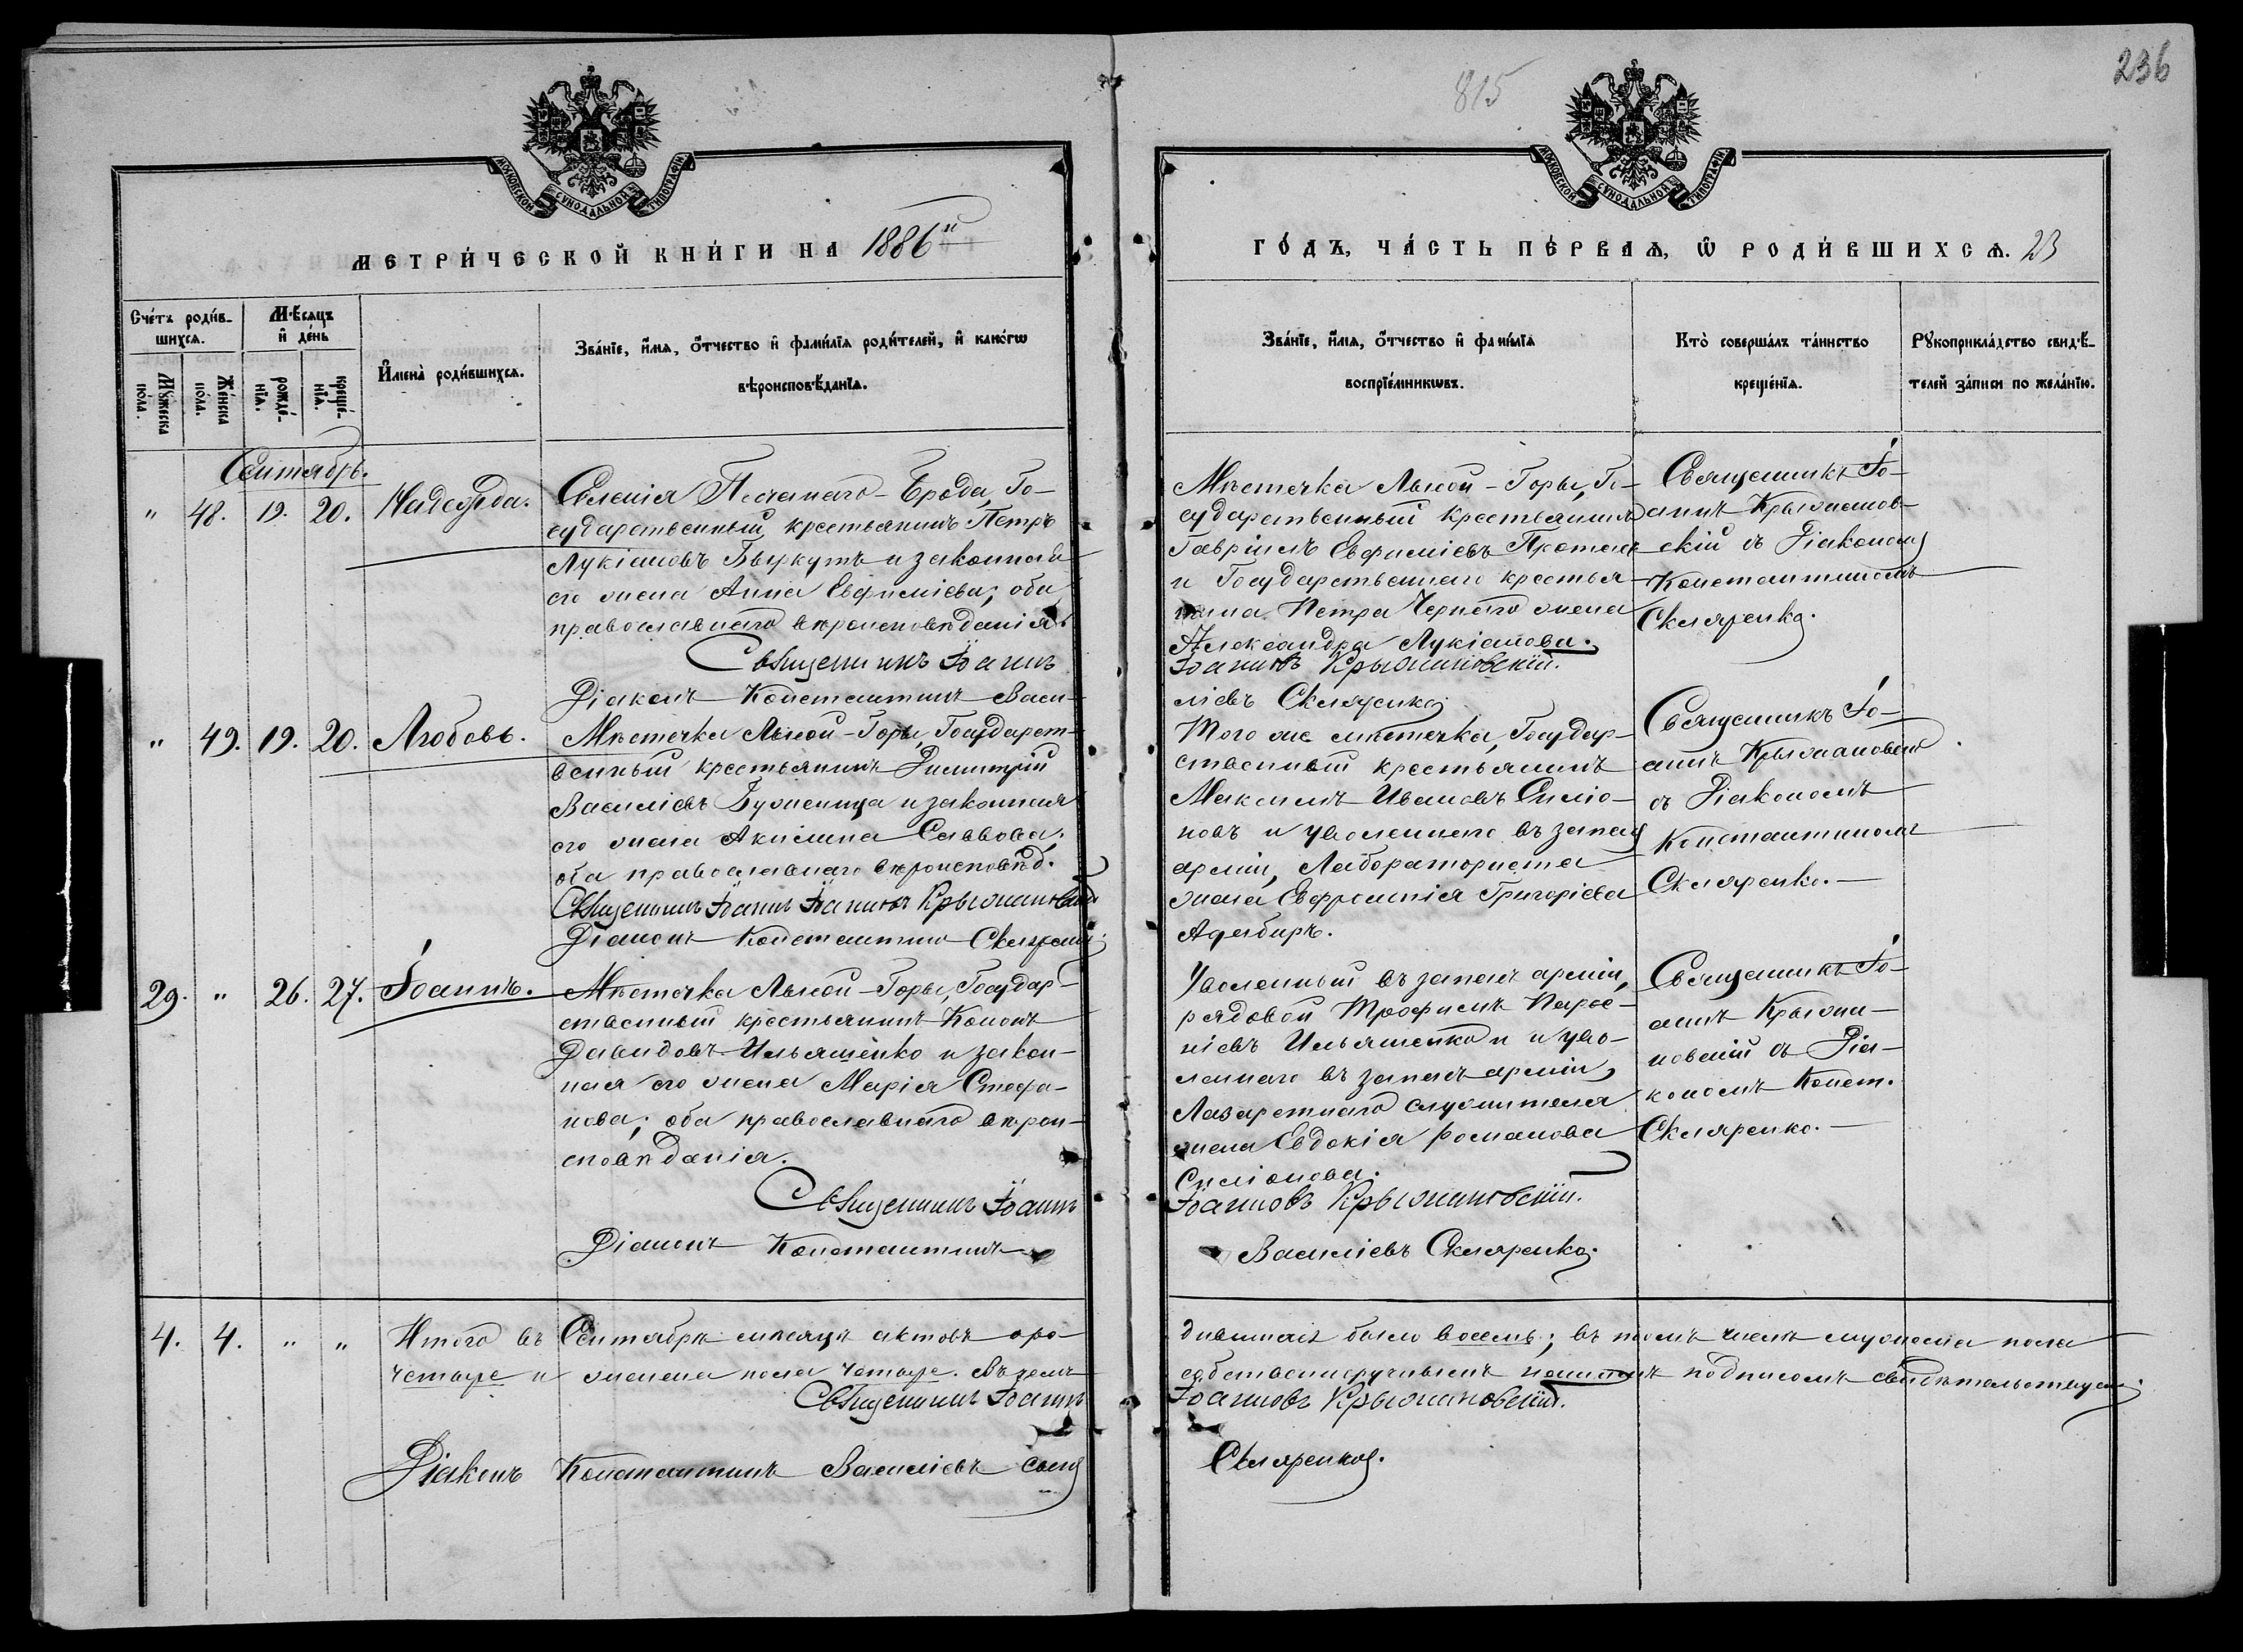 815
236
МОСКОВСКОЙ СѴНОДАЛЬНОЙ ТИПОГРАФІИ
МОСКОВСКОЙ СѴНОДАЛЬНОЙ ТИПОГРАФІИ
МЕТРИ́ЧЕСКОЙ КНИ́ГИ НА 1886й
ГО́ДЪ, ЧА́СТЬ ПЕ́РВАѦ, Ѡ҆ РОДИ́ВШИХСѦ. 23
Сче́тъ роди́в-
шихсѧ.
Мꙋ́жеска
по́ла.
Же́нска
по́ла.
Мѣ́сѧцъ
и҆ де́нь
рожде́-
нїѧ.
креще́-
нїѧ.
И҆мена̀ роди́вшихсѧ.
Зва́нїе, и҆́мѧ, ѻ҆́тчество и҆ фами́лїѧ роди́телей, и҆ како́гѡ
вѣроисповѣ́данїѧ.
Зва́нїе, и҆́мѧ, ѻ҆́тчество и҆ фами́лїѧ
воспрїе́мникѡвъ.
Кто̀ соверша́лъ та́инство
креще́нїѧ.
Рꙋкоприкла́дство свидѣ́-
телей за́писи по жела́нїю.
Сентябрь.
" 48. 19. 20. Надежда.
Селенія Песчанаго-Брода, Го-
сударственный крестьянинъ Петръ
Лукіановъ Выркутъ и законная
его жена Анна Евфиміева; оба
православнаго вѣроисповѣданія.
Священникъ Іоаннъ
Діаконъ Константинъ Васи-
Мѣстечка Лысой-Горы, Го-
сударственный крестьянинъ
Гавріилъ Евфиміевъ
и Государственнаго крестья-
нина Петра Чернаго жена
Александра Лукіанова.
Іоанновъ Крыжановскій.
ліевъ Скляренко.
Священникъ Іо-
аннъ Крыжанов-
скій съ Діакономъ
Константиномъ
Скляренко.
" 49. 19. 20. Любовь.
Мѣстечка Лысой-Горы, Государст-
венный крестьянинъ Димитрій
Василіевъ Буженица и законная
его жена Акилина Саввова;
оба православнаго вѣроисповѣд.
Священникъ Іоаннъ Іоанновъ Крыжановскій
Діаконъ Константинъ Скляренко.
Того же мѣстечка, Государ-
ственный крестьянинъ
Максимъ Ивановъ Симо-
новъ и уволеннаго въ запасъ
арміи, Лабораториста
жена Евфросинія Григоріева
Священникъ Іо-
аннъ Крыжановскій
съ Діакономъ
Константиномъ
Скляренко.
29. " 26. 27. Іоаннъ.
Мѣстечка Лысой-Горы, Государ-
ственный крестьянинъ Кононъ
Давидовъ Ильяшенко и закон-
ная его жена Марія Стефа-
нова; оба православнаго вѣрои-
сповѣданія.
Священникъ Іоаннъ
Діаконъ Константинъ
Уволенный въ запасъ арміи,
рядовой Трофимъ Парѳе-
ніевъ Ильяшенко и уво-
леннаго въ запасъ арміи,
Лазаретнаго служителя
жена Евдокія Романова
Симонова.
Іоанновъ Крыжановскій.
Василіевъ Скляренко.
Священникъ Іо-
аннъ Крыжа-
новскій съ Діа-
кономъ Конст.
Скляренко.
4. 4. " " Итого въ Сентябрѣ мѣсяцѣ актовъ о ро-
дившихся было восемь; въ томъ числѣ мужеска пола
четыре и женска пола четыре. Въ чемъ
собственноручнымъ нашимъ подписомъ свидѣтельствуемъ.
Священникъ Іоаннъ
Іоанновъ Крыжановскій.
Діаконъ Константинъ Василіевъ сынъ
Скляренко.